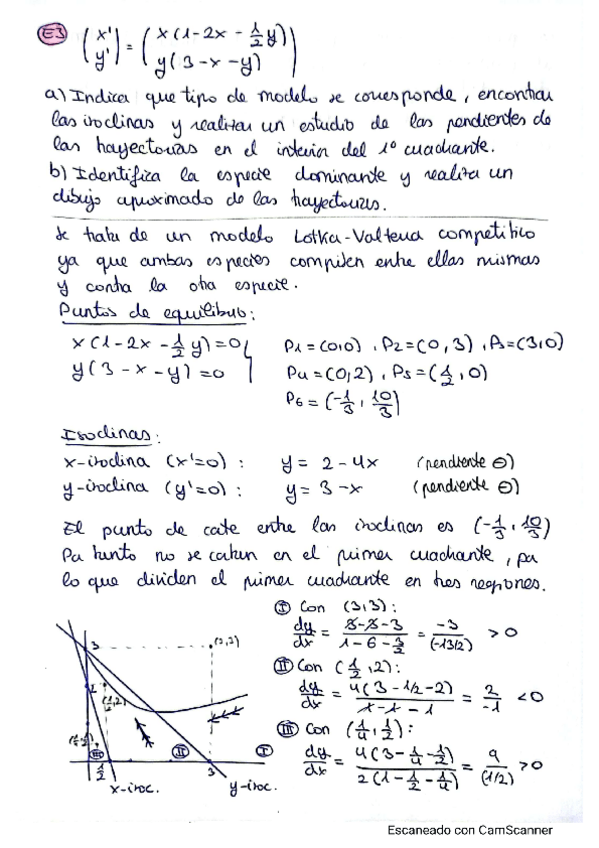 E3 (x' y') = ( x(1-2x - 1/2 y)
y(3-x-y) )
a) Indica que tipo de modelo se corresponde, encontrar
las isoclinas y realizar un estudio de las pendientes de
las trayectorias en el interior del 1º cuadrante.
b) Identifica la especie dominante y realiza un
dibujo aproximado de las trayectorias.
Se trata de un modelo Lotka-Valterra competitivo
ya que ambas especies compiten entre ellas mismas
y contra la otra especie.
Puntos de equilibrio:
x(1-2x - 1/2 y)=0 P1=(0,0), P2=(0,3), P3=(3,0)
y(3-x-y)=0 P4=(0,2), P5=(1/2,0)
P6=(-1/3, 10/3)
Isoclinas:
x-isoclina (x'=0): y = 2-4x (pendiente ⊖)
y-isoclina (y'=0): y = 3-x (pendiente ⊖)
El punto de corte entre las isoclinas es (-1/3, 10/3)
Por tanto no se cortan en el primer cuadrante, por
lo que dividen el primer cuadrante en tres regiones.
I Con (3,3):
dy/dx = (3-3-3)/(1-6-3/2) = -3/(-13/2) > 0
II Con (1/2,2):
dy/dx = 4(3-1/2-2)/(1-1-1) = 2/-1 < 0
III Con (1/4,1/2):
dy/dx = 4(3-1/4-1/2)/2(1-1/2-1/4) = 9/(1/2) > 0
3
2
(1/2,2)
III
II
I
1/2
3
x-isoc.
y-isoc.
Escaneado con CamScanner